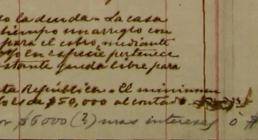 la deuda - La casa
tiempo un arreglo con
para el cobro, mediante
especie pertenece
queda libre para
ta Republica - El minimum
es de $50,000 al contado
$6000 (3) mas intereses ó